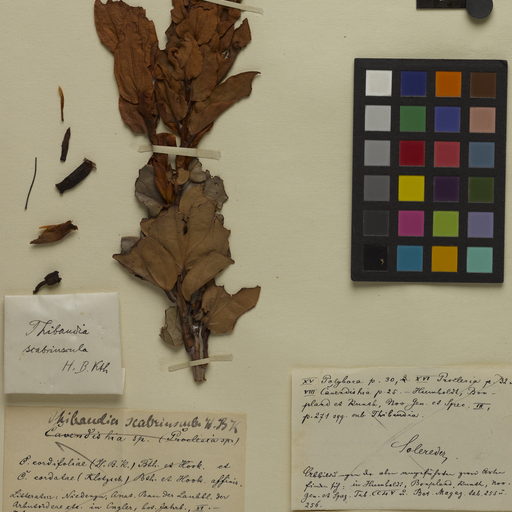 Thibaudia
scabriuscula
H. B. Kth
Thibaudia scabriuscula H. B. K
Cavendishia sp. (Proclesia sp.)
C. cordifoliae (H. B. K.) Bth. et Hook. et
C. cordatae (Klotzsch) Bth. et Hook. affinis.
Litteratur, Niedenzu, Anat. Bau der Laubbl. der
Arbutoideae etc. in Engler, bot. Jahrb., XI. —
XV Polyboea p. 30, & XVI Proclesia p. 32
VIII Cavendishia p. 25. — Humboldt, Bon-
pland et Kunth, Nov. Gen. et Spec. III,
p. 271 sqq. sub Thibaudia.
Solereder
in Humboldt, Bonpland, Kunth, Nov.
Gen. et Spec. 255 u.
256.